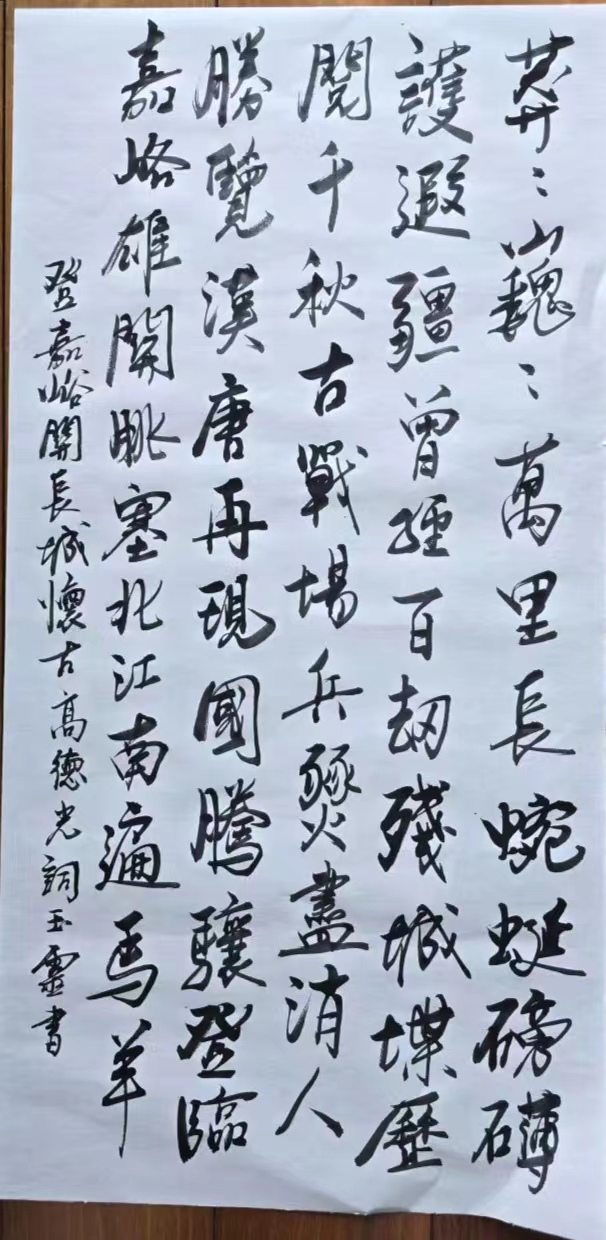 莽〻巍〻萬里長蜿蜒磅礴
護遐疆曾經百劫殘城堞歷
閱千秋古戰場兵燹盡消人
勝覽漢唐再現國騰驤登臨
嘉峪雄關眺塞北江南遍馬羊
登嘉峪關長城懷古高德光詞玉靈書